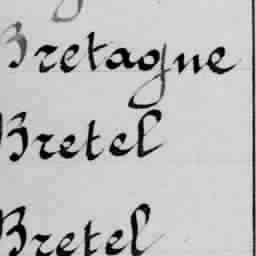 Bretagne
Bretel
Bretel